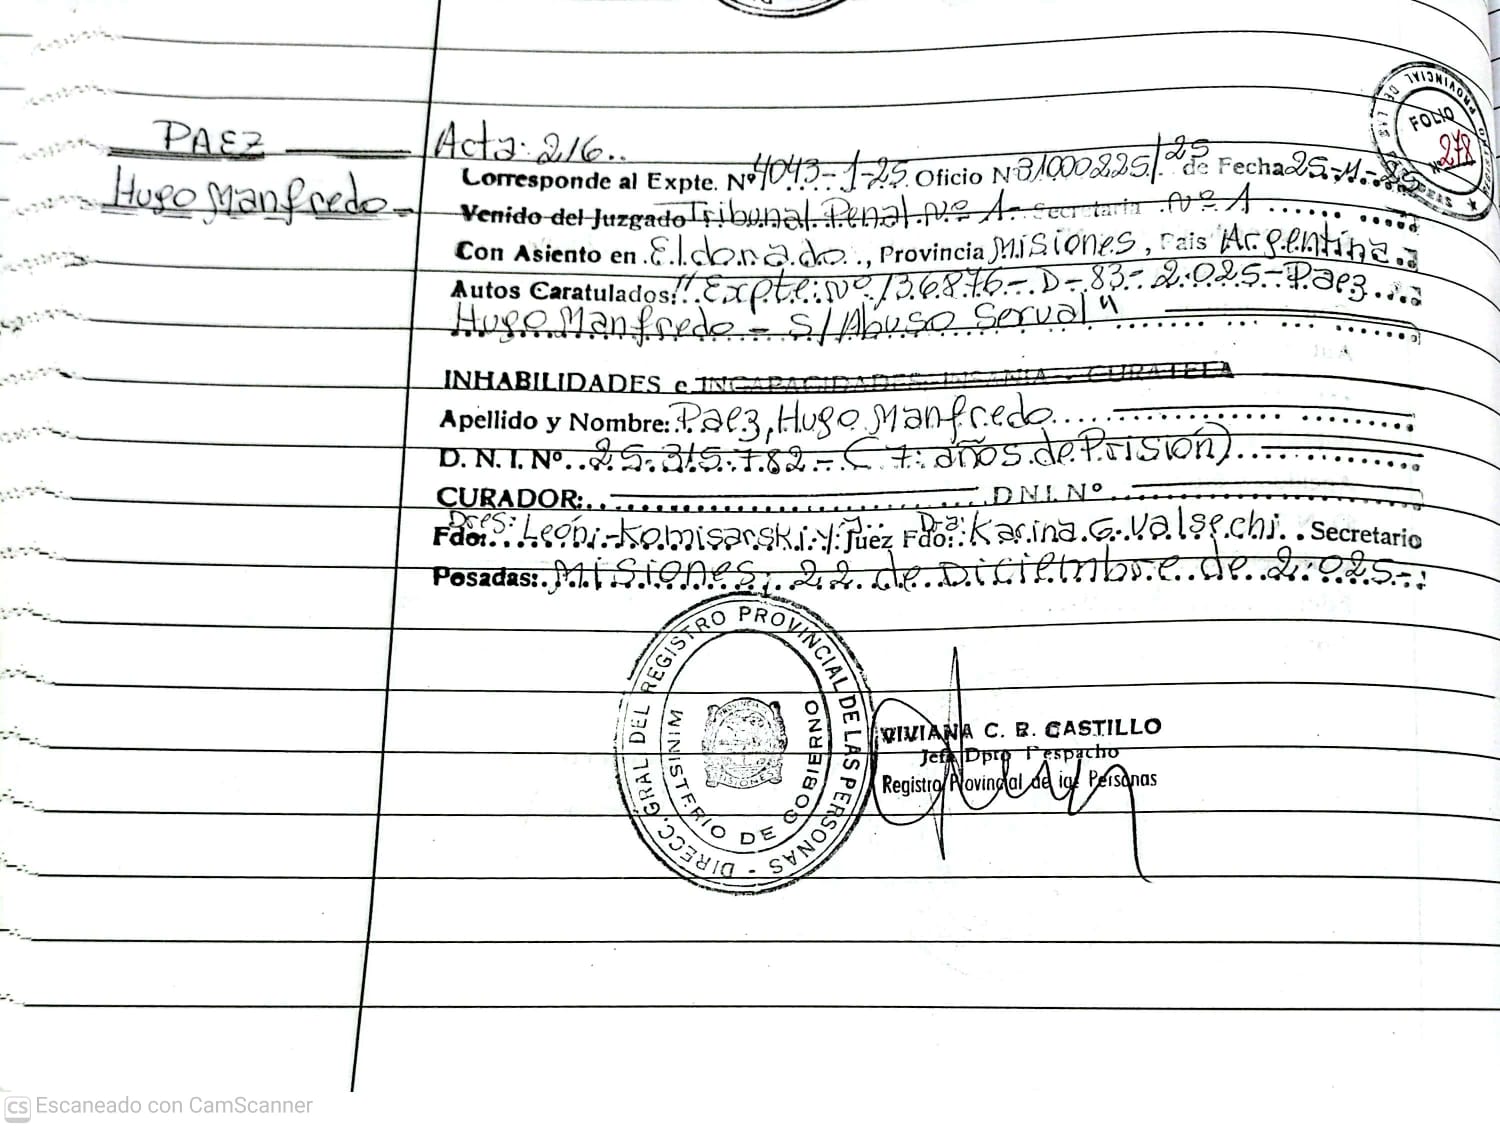 PAEZ
Hugo Manfredo
Acta: 216..
Corresponde al Expte. Nº 4043-1-25. Oficio Nº 31000225/25 de Fecha 25-11-25
Venido del Juzgado Tribunal Penal Nº 1- Secretaria Nº 1
Con Asiento en Eldorado, Provincia Misiones, Pais Argentina.
Autos Caratulados: "Expte: Nº 136876-D-83-2.025- Paez
Hugo Manfredo - S/ Abuso Sexual"
INHABILIDADES e INCAPACIDADES INSANIA - CURATELA
Apellido y Nombre: Paez, Hugo Manfredo
D. N. I. Nº 25.315.782.- (7 años de Prisión)
CURADOR: D N I. Nº
Fdo: Dres: León-Komisarski y Juez Fdo: Dra: Karina G. Valsechi. Secretario
Posadas: Misiones, 22 de Diciembre de 2.025-
DIRECC. GRAL DEL REGISTRO PROVINCIAL DE LAS PERSONAS -
MINISTERIO DE GOBIERNO
VIVIANA C. R. CASTILLO
Jefa Dpto Despacho
Registro Provincial de las Personas
PROVINCIAL DE LAS
FOLIO
Nº 278
CS Escaneado con CamScanner